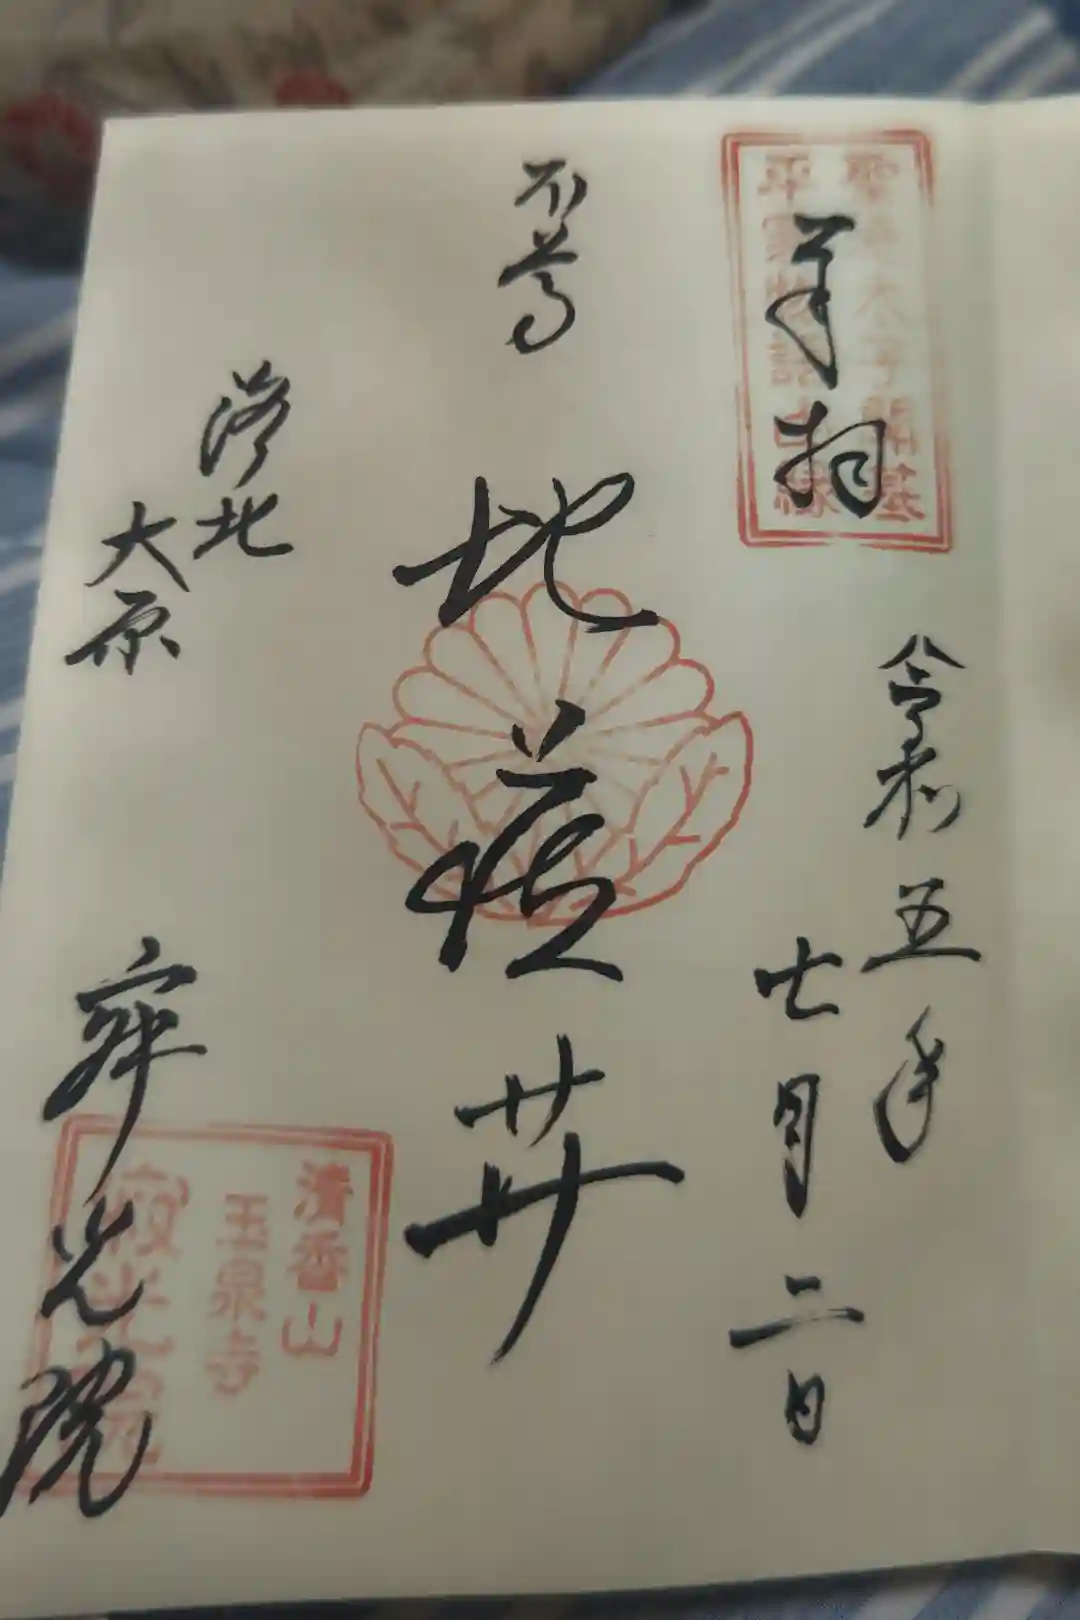 聖徳太子開基
平家物語由緣
奉拝
令和五年
七月二日
本尊
地蔵菩薩
洛北
大原
寂光院
清香山
玉泉寺
寂光院